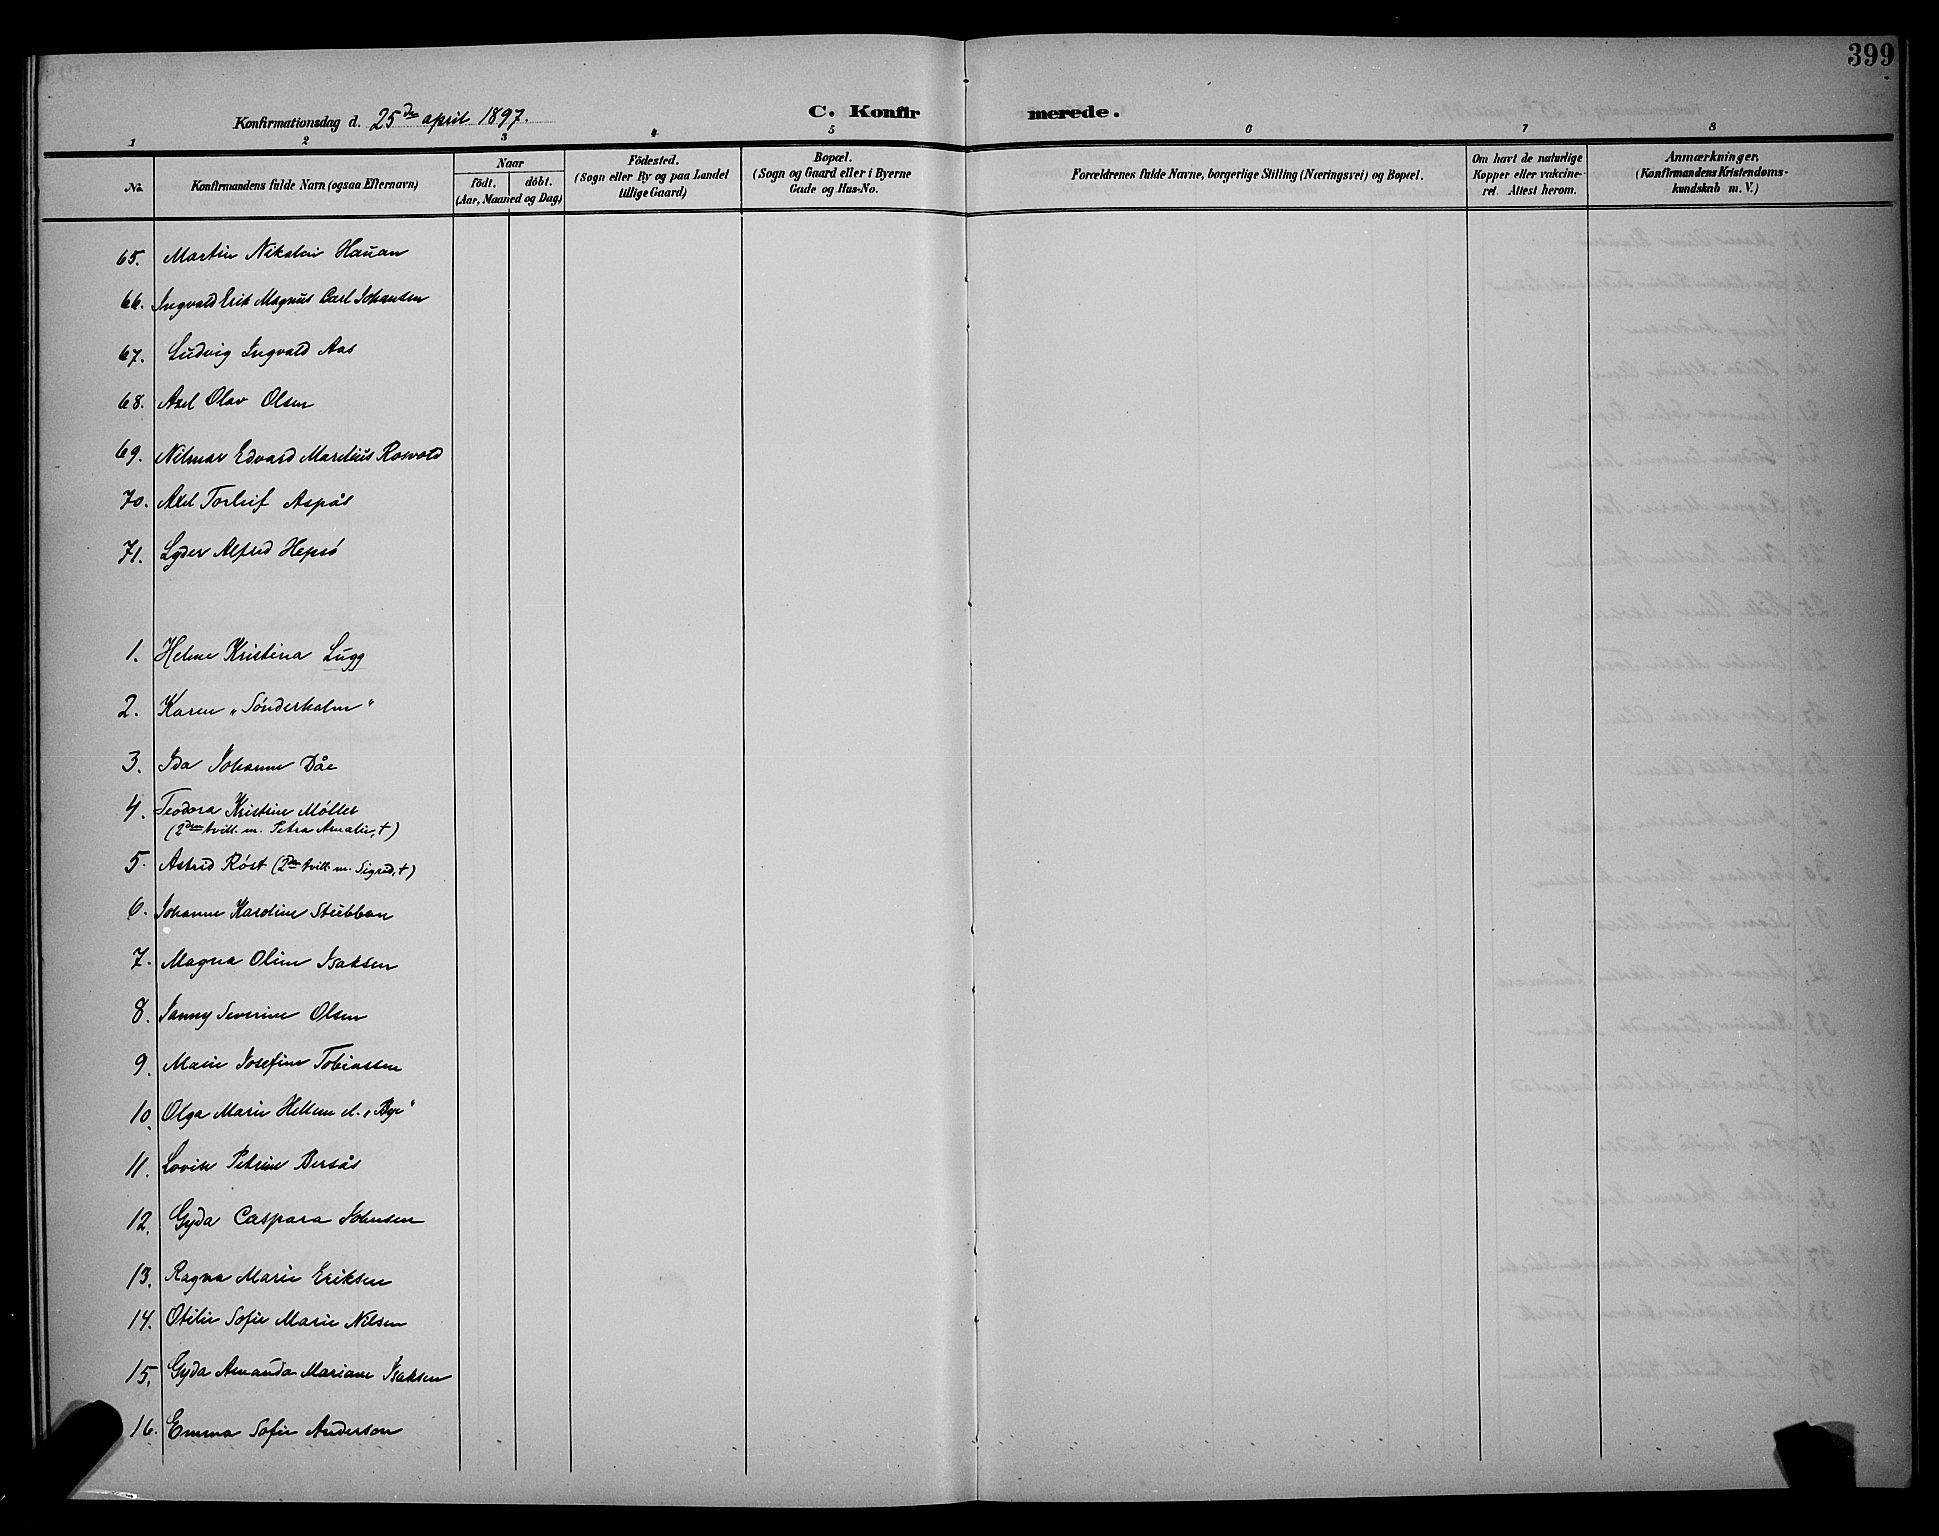 399
Konfirmationsdag d. 25de april 1897.
C. Konfirmerede.
1 2 3 4 5 6 7 8
No.
Konfirmandens fulde Navn (ogsaa Efternavn)
Naar
födt. döbt.
(Aar, Maaned og Dag)
Födested.
(Sogn eller By og paa Landet
tillige Gaard)
Bopæl.
(Sogn og Gaard eller i Byerne
Gade og Hus-No.
Forældrenes fulde Navne, borgerlige Stilling (Næringsvei) og Bopæl.
Om havt de naturlige
Kopper eller vakcine-
ret. Attest herom.
Anmærkninger.
(Konfirmandens Kristendoms-
kundskab m. V.)
65. Martin Nikolai Hauan
66. Ingvald Erik Magnus Carl Johansen
67. Ludvig Ingvald Aas
68. Axel Olav Olsen
69. Hilmar Edvard Marelius Rosvold
70. Axel Torleif Aspås
71. Lyder Alfred Hepsö
1. Helene Kristina Lugg
2. Karen „Sönderholm"
3. Ida Johanne Dåe
4. Teodora Kristine Möller
(2den tvill. m. Petra Amalie, †)
5. Astrid Röst (2den tvill. m. Sigrid, †)
6. Johanne Karoline Stubban
7. Magna Oline Isaksen
8. Fanny Severine Olsen
9. Marie Josefine Tobiassen
10. Olga Marie Hellem el. „Bye"
11. Lovise Petrine Bersås
12. Gyda Caspara Johnsen
13. Ragna Marie Eriksen
14. Otilie Sofie Marie Nilsen
15. Gyda Amanda Mariane Isaksen
16. Emma Sofie Anderson